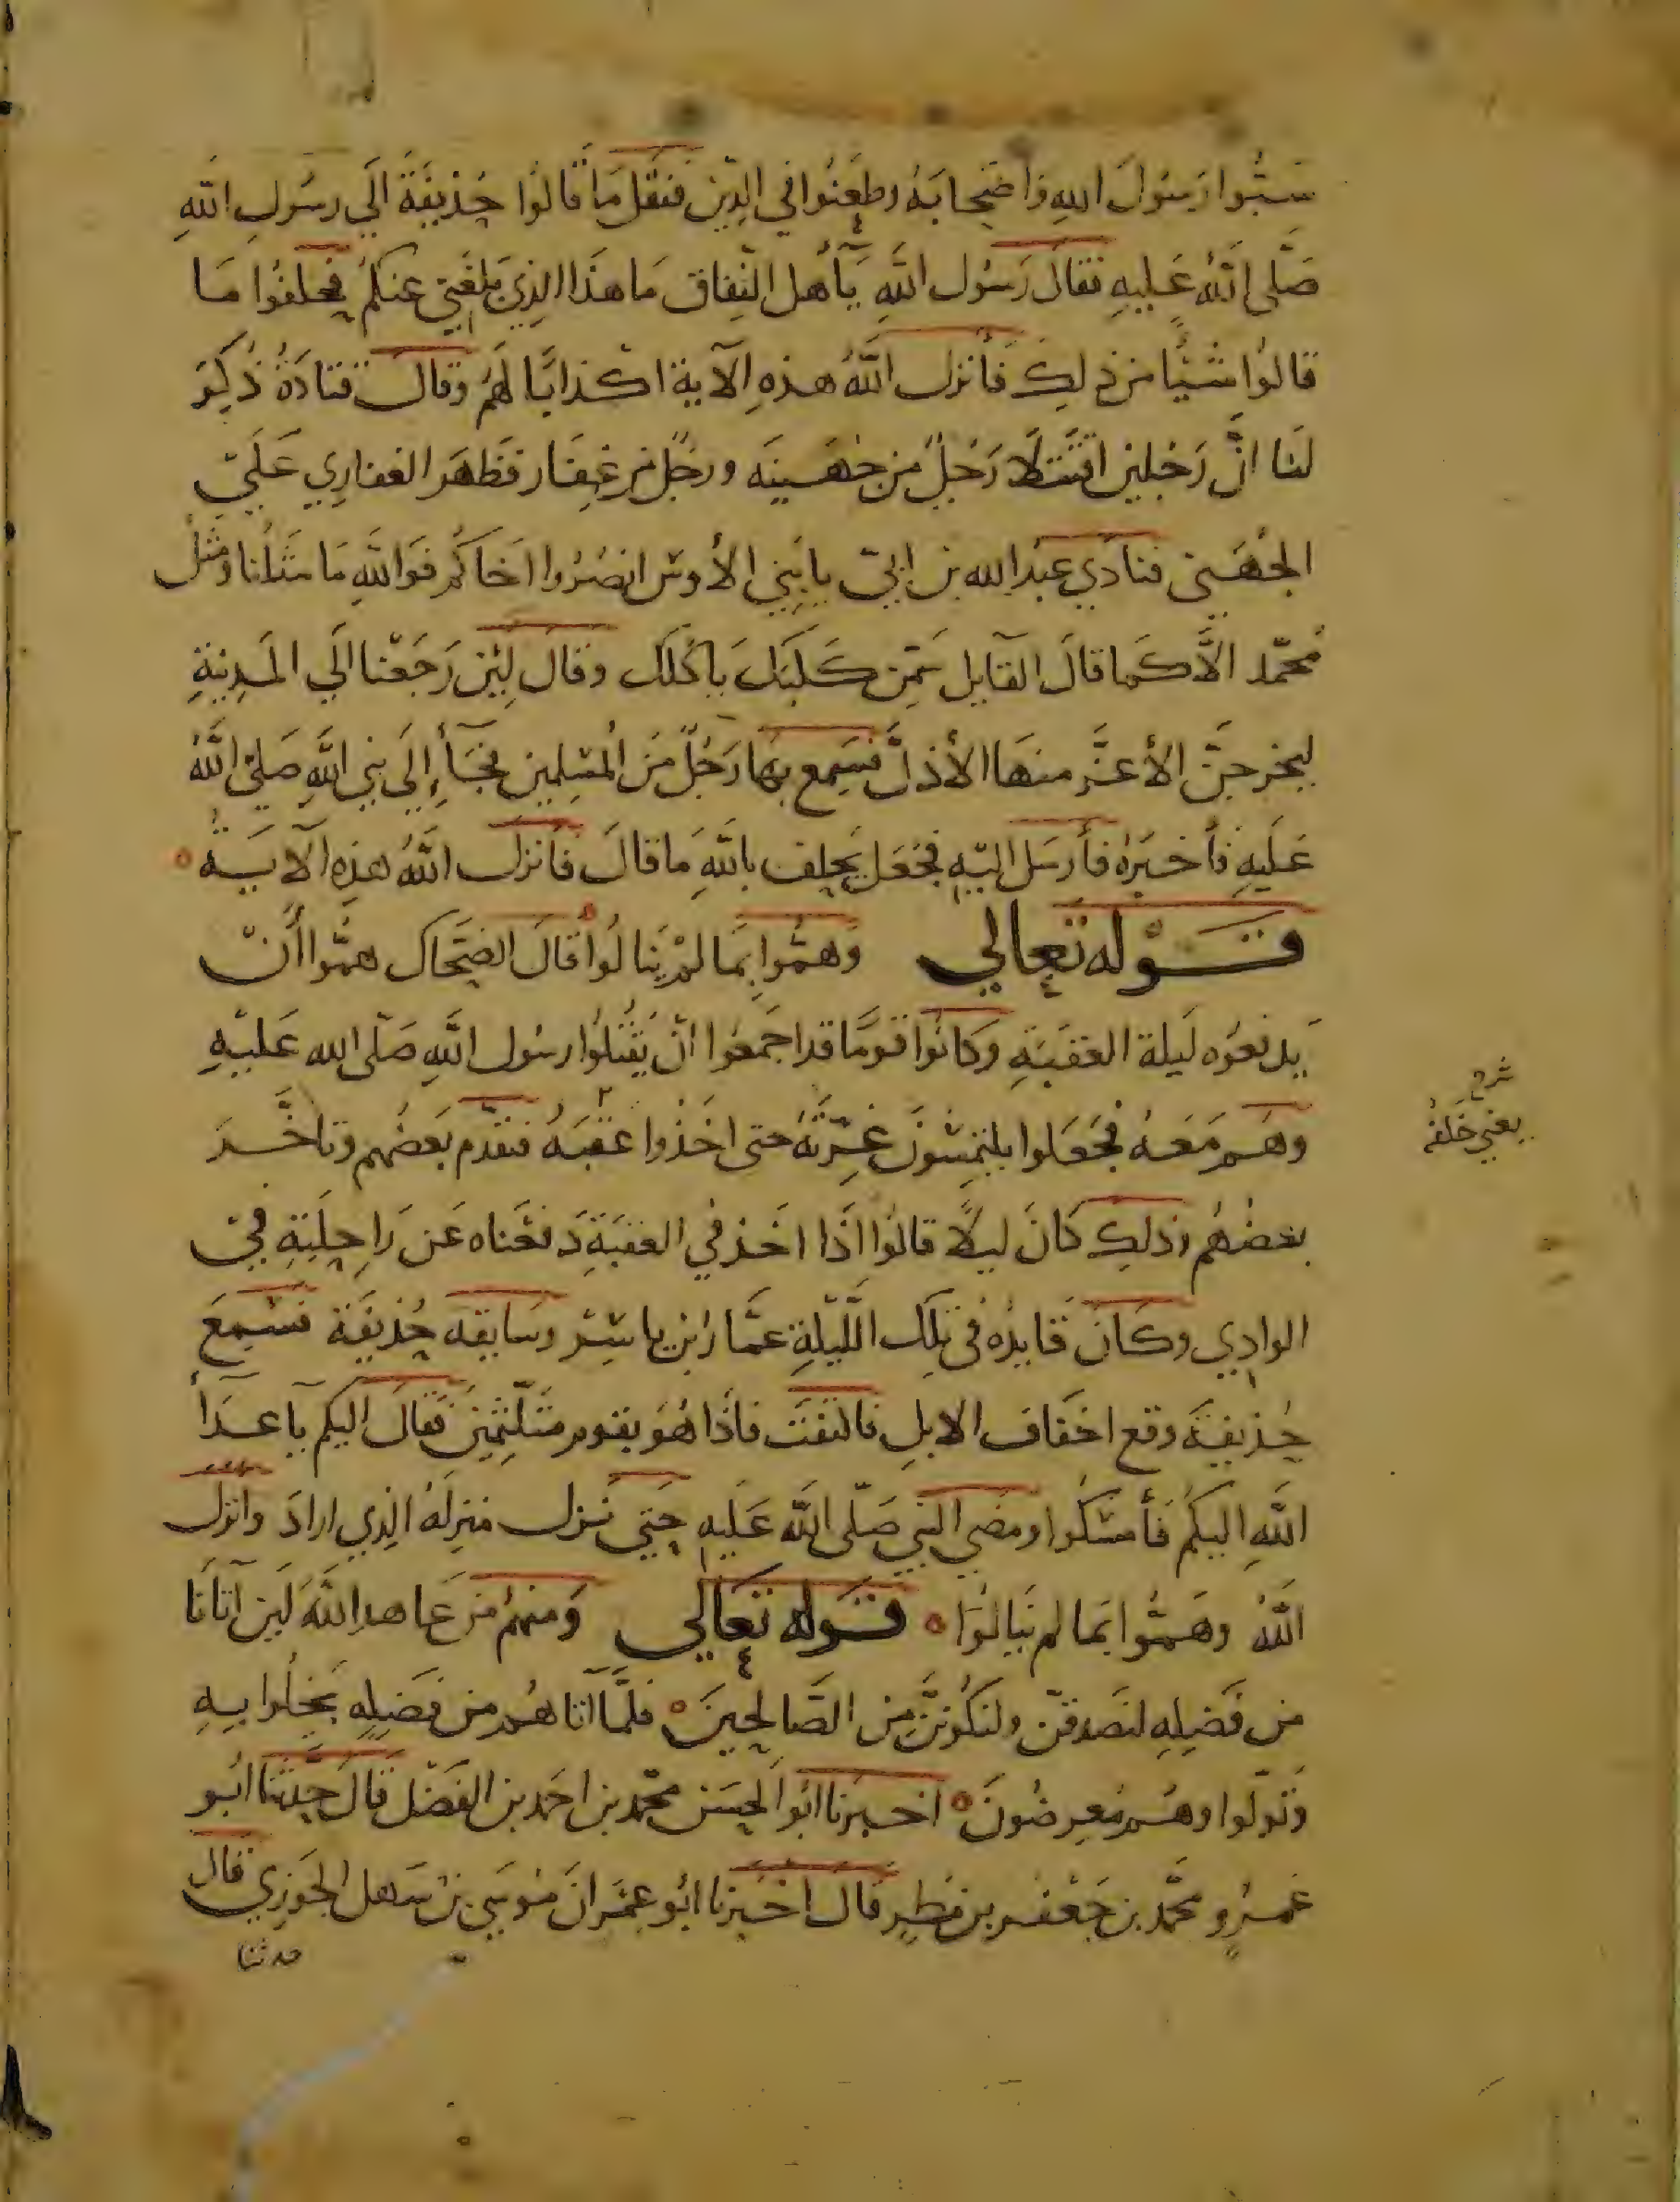 سَبُّوا رَسُولَ اللهِ وَاَصْحَابَهُ وطَعَنُوا في الدِّيْنِ فَنَقَلَ مَا قَالُوا حُذيفَةَ الَي رسُولِ اللهِ
صَلَّى اللَّهُ عَلِيهِ فَقَالَ رَسُول اللَّهِ يَآأهل النِّفاق مَا هَذَا الذِي بَلغَنِي عَنكُم فحلفُوا مَا
قالوُا شَيْئًا من ذلِكَ فَأنزل اللَّهُ هذهِ الآية اكذابًا لَهُم وَقَالَ قتادَةُ ذُكِرَ
لَنا انَّ رَجُلين اقتَتَلَا رَجُلٌ من جُهَينَه ورَجُلٌ من غِفار فَظهَرَ الغفارِي عَلَي
الجُهَني فنادَي عَبْدُ الله بن ابيّ يا بَنِي الأوس انصُرُوا اخَاكُم فَوَاللَّهِ مَا مَثَلُنا ومَثَل
مُحمَّد الَّا كَما قالَ القآيل سَمِّن كَلبَكَ يأكلك وقَال لِئن رَجَعْنا الَي المَدِينةِ
ليخرجَنَّ الأعَزَّ منهَا الأذلَّ فسَمِع بهَا رَجُلٌ مِنَ المُسِلمين فجَآءَ إِلَى نبي اللَّهِ صَلَّى اللَّهُ
عَلَيهِ فأخبَرَهُ فأرسَل اليْهِ فجُعَل يَحلِف باللَّهِ مَا قالَ فأنزَلَ اللَّهُ هذِهِ الآيَة
قَوْله تعالي وَهمُّوا بِمَا لَمْ يَنالُوا قالَ الضحَّاك همُّوا أنْ
يَدفعُوه لَيلة العقبَةِ وَكانُوا قومًا قد اجمَعُوا انْ يَقْتلُوا رسُول اللَّهِ صَلَّى الله عَليْهِ
وهُم مَعَهُ فجَعَلوا يلتمِسُونَ غِرَّتَهُ حتى اخَذُوا عَقبَهُ فتقدَّم بَعضُهم وتأخَّرَ
بعضُهُم وَذلِك كَانَ ليلًا قالُوا اذَا اخَذ فِي العقبَةِ دَفعْناه عَن رَاحِلَتِهِ فِي
الوادِي وَكَانَ قَايدُه في تلكَ اللَّيْلَةِ عمَّار ابن ياسِر وسَايقه حُذيفَة فسَمِعَ
حُذيفَة وقع اخفاف الابلِ فالتفتَ فاذا هُو بقومٍ متلثِّمِينَ فقالَ اليكم يا أعدَآءَ
اللَّهِ اليكُم فَأمسَكُوا ومضي النبي صَلَّى اللَّه عَلَيه حَتي نَزل منزلَهُ الذِي ارادَ وانزل
اللَّهُ وهَمُّوا بمَا لم يَنالُوا قَوله تعَالي وَمنهُم من عَاهدَ اللَّهَ لَين آتانَا
من فَضلِهِ لنَصدقنّ ولنكُونَنَّ مِن الصَّالحِينَ فلمَّا آتاهُم من فَضلِهِ بَخلُوا بِهِ
وَتولّوا وهُم مُعرِضُونَ اخبَرنا ابُو الحسَن محمَّد بن احمَد بن الفَضْل قَالَ حَدَّثنا ابُو
عَمرٍو محمَّد بن جَعْفَر بن مَطرٍ قال اخبَرنا ابُو عِمْرَانَ مُوسَي بن سَهل الجَوزِي قال
حدثنا
شرح
يعني خَلفَهُ